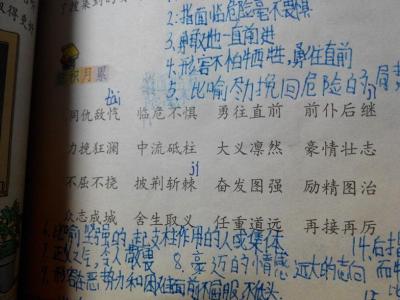 2:指面临危险毫不畏惧
3.勇敢地一直前进
4.形容不怕牺牲,勇往直前
5.比喻尽力挽回危险的局
积月累
同仇敌忾 临危不惧 勇往直前 前仆后继
力挽狂澜 中流砥柱 大义凛然 豪情壮志
jí
不屈不挠 披荆斩棘 奋发图强 励精图治
众志成城 舍生取义 任重道远 再接再厉
6.比喻坚强的起支柱作用的人或集体 14.后指
令人敬畏 8.豪迈的情感 远大的志向
恶势力和困难面前不屈服不低头